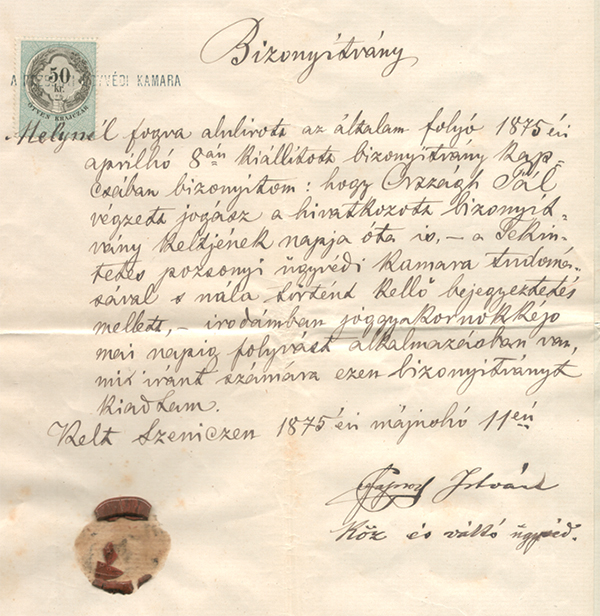 Bizonyitvány
50
kr.
ÖTVEN KRAJCZÁR
A ÜGYVÉDI KAMARA
Melynél fogva alulirott az általam folyó 1875 évi
aprilhó 8án kiállitott bizonyitvány kap-
csában bizonyitom: hogy Országh Pál
végzett jogász a hivatkozott bizonyit-
vány keltjének napja óta is, – a Tekin-
tetes pozsonyi ügyvédi kamara tudomá-
sával s nála történt kellő bejegyeztetés
mellett, – irodámban joggyakornokkép
mai napig folyvást alkalmazásban van,
mi iránt számára ezen bizonyitványt
kiadtam.
Kelt Szeniczen 1875 évi májushó 11én
István
Köz és váltó ügyvéd.